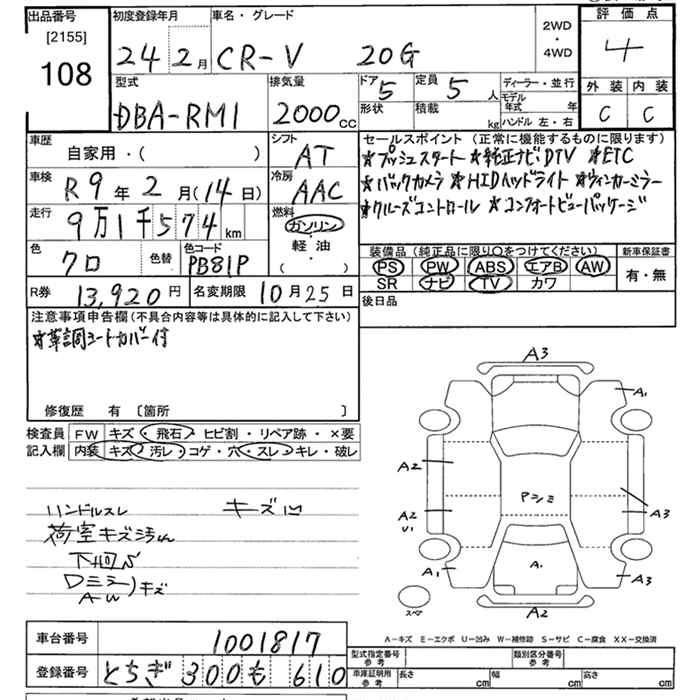 出品番号
[2155]
108
初度登録年月
24年 2月
車名・グレード
CR-V 20G
2WD
・
4WD
評価点
4
外装 内装
C C
型式
DBA-RM1
排気量
2000cc
ドア 5
定員 5人
形状
積載 kg
ディーラー・並行
モデル年式 年
ハンドル 左・右
車歴
自家用・( )
シフト
AT
車検
R9年2月(14日)
冷房
AAC
走行
9万1千574km
燃料
ガソリン
・
軽油
( ・ )
色
クロ
色替
色コード
PB81P
R券
13,920円
名変期限 10月25日
セールスポイント (正常に機能するものに限ります)
★プッシュスタート ★純正ナビ.DTV ★ETC
★バックカメラ ★HIDヘッドライト ★ウィンカーミラー
★クルーズコントロール ★コンフォートビューパッケージ
装備品(純正品に限り○をつけてください)
新車保証書
PS PW ABS エアB AW
SR ナビ TV カワ
有・無
後日品
注意事項申告欄(不具合内容等は具体的に記入して下さい)
★革調シートカバー付
修復歴 有 〔箇所 〕
検査員記入欄
FW キズ・飛石・ヒビ割・リペア跡・×要
内装 キズ・汚レ・コゲ・穴・スレ・キレ・破レ
ハンドルスレ キズ凹
荷室キズ汚れ
下回S
Dミラー
AW
キズ
A3
A1
A2
A2
U1
Pシミ
A3
A1
A.
A3
スペア
A2
A-キズ E-エクボ U-凹み W-補修跡 S-サビ C-腐食 XX-交換済
車台番号
1001817
登録番号
とちぎ 300 も 610
型式指定番号
参考
類別区分番号
参考
車庫証明用
参考
長さ cm
幅 cm
高さ cm